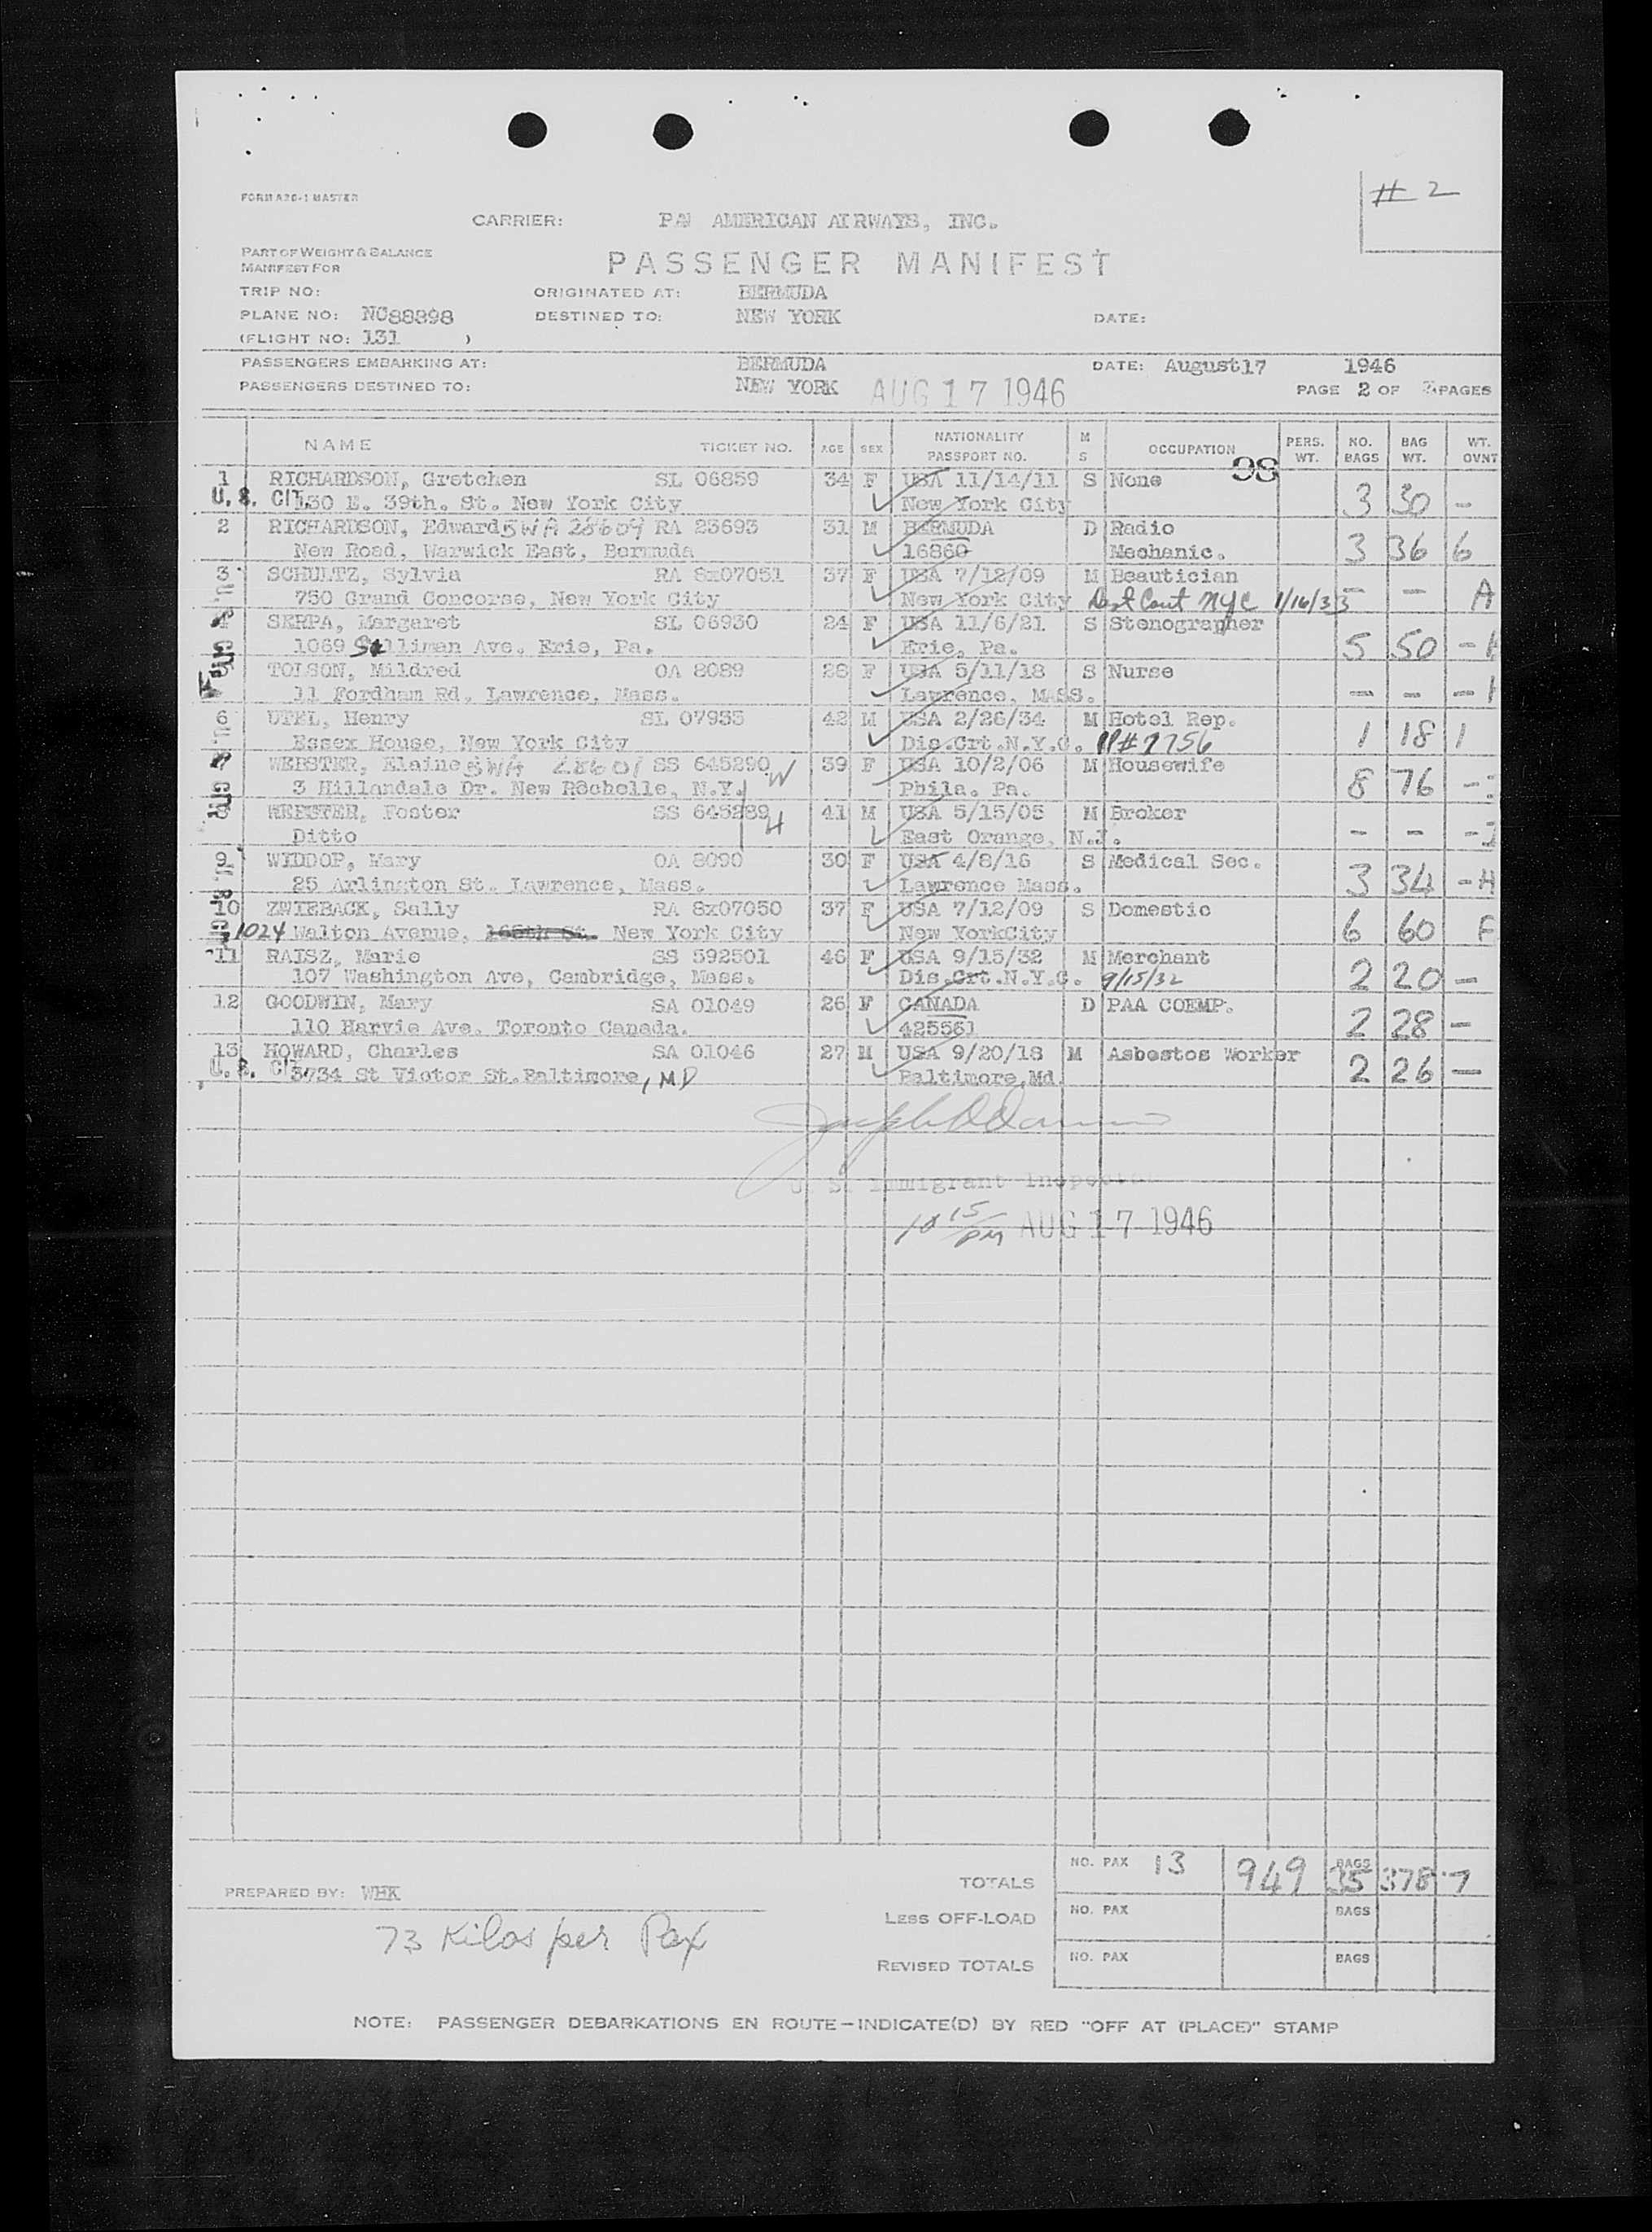 # 2
FORM A20-1 MASTER
CARRIER: PAN AMERICAN AIRWAYS, INC.
PART OF WEIGHT & BALANCE
MANIFEST FOR
PASSENGER MANIFEST
TRIP NO: ORIGINATED AT: BERMUDA
PLANE NO: NC88898 DESTINED TO: NEW YORK DATE:
(FLIGHT NO: 131 )
PASSENGERS EMBARKING AT: BERMUDA DATE: August17 1946
PASSENGERS DESTINED TO: NEW YORK AUG 17 1946 PAGE 2 OF PAGES
NAME TICKET NO. AGE SEX NATIONALITY PASSPORT NO. M S OCCUPATION PERS. WT. NO. BAGS BAG WT. WT. OVNT
98
1 RICHARDSON, Gretchen SL 06859 34 F USA 11/14/11 S None
U. S. CIT. 130 E. 39th. St. New York City New York City 3 30 -
2 RICHARDSON, Edward BWA 28609 RA 23693 31 M BERMUDA D Radio
New Road, Warwick East, Bermuda 16860 Mechanic. 3 36 6
3 SCHULTZ, Sylvia RA 8x07051 37 F USA 7/12/09 M Beautician
750 Grand Concorse, New York City New York City Dist Court NYC 1/16/33 - - A
SERPA, Margaret SL 06930 24 F USA 11/6/21 S Stenographer
1069 Silliman Ave. Erie, Pa. Erie, Pa. 5 50 -
TOLSON, Mildred OA 8089 28 F USA 5/11/18 S Nurse
11 Fordham Rd, Lawrence, Mass. Lawrence, MASS. - - -
6 UTEL, Henry SL 07935 42 M USA 2/26/34 M Hotel Rep.
Essex House, New York City Dis.Crt.N.Y.C. PP# 7756 1 18 1
WEBSTER, Elaine BWA 28601 SS 645290 W 39 F USA 10/2/06 M Housewife
3 Hillandale Dr. New Rochelle, N.Y. Phila. Pa. 8 76 -
WEBSTER, Foster SS 645289 H 41 M USA 5/15/05 M Broker
Ditto East Orange, N.J. - - -
9 WIDDOP, Mary OA 8090 30 F USA 4/8/16 S Medical Sec.
25 Arlington St. Lawrence, Mass. Lawrence Mass. 3 34 - H
10 ZWIEBACK, Sally RA 8x07050 37 F USA 7/12/09 S Domestic
1024 Walton Avenue, 166th St. New York City New YorkCity 6 60 F
11 RAISZ, Marie SS 592501 46 F USA 9/15/32 M Merchant
107 Washington Ave, Cambridge, Mass. Dis.Crt.N.Y.C. 9/15/32 2 20 -
12 GOODWIN, Mary SA 01049 26 F CANADA D PAA COEMP.
110 Harvie Ave. Toronto Canada. 425561 2 28 -
13 HOWARD, Charles SA 01046 27 M USA 9/20/18 M Asbestos Worker
U. S. CIT. 3734 St Victor St.Baltimore, MD Baltimore,Md. 2 26 -
U. S. Immigrant Inspector
10 15 PM AUG 17 1946
TOTALS NO. PAX 13 949 BAGS 35 378 7
PREPARED BY: WHK
LESS OFF-LOAD NO. PAX BAGS
73 Kilos per Pax
REVISED TOTALS NO. PAX BAGS
NOTE: PASSENGER DEBARKATIONS EN ROUTE—INDICATE(D) BY RED "OFF AT (PLACE)" STAMP